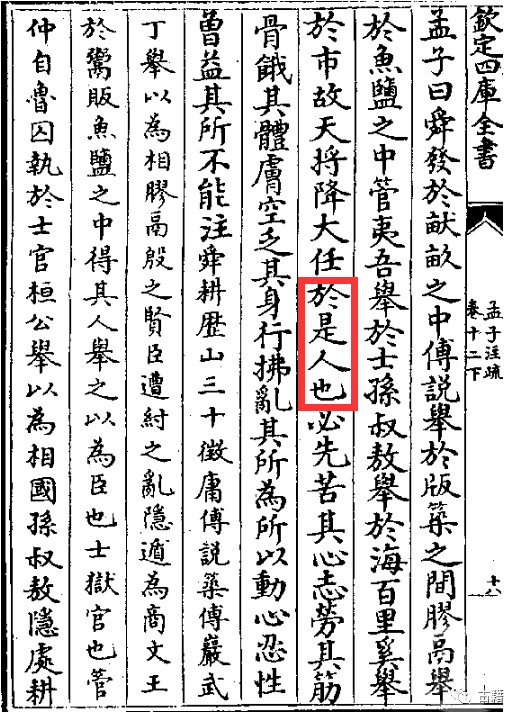 欽定四庫全書
孟子注疏
卷十二下
孟子曰舜發於畎畝之中傅説舉於版築之間膠鬲舉
於魚鹽之中管夷吾舉於士孫叔敖舉於海百里奚舉
於市故天将降大任於是人也必先苦其心志勞其筋
骨餓其體膚空乏其身行拂亂其所為所以動心忍性
曽益其所不能注舜耕歴山三十徵庸傅説築傅巖武
丁舉以為相膠鬲殷之賢臣遭紂之亂隱遁為商文王
於鬻販魚鹽之中得其人舉之以為臣也士獄官也管
仲自魯囚執於士官桓公舉以為相國孫叔敖隱處耕
古籍